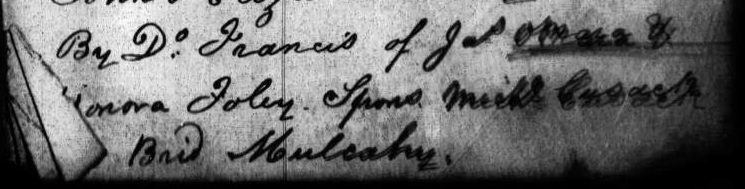 By Do. Francis of Jas OMara &
Honora Foley. Spons. Michl Cusack
Brid Mulcahy.